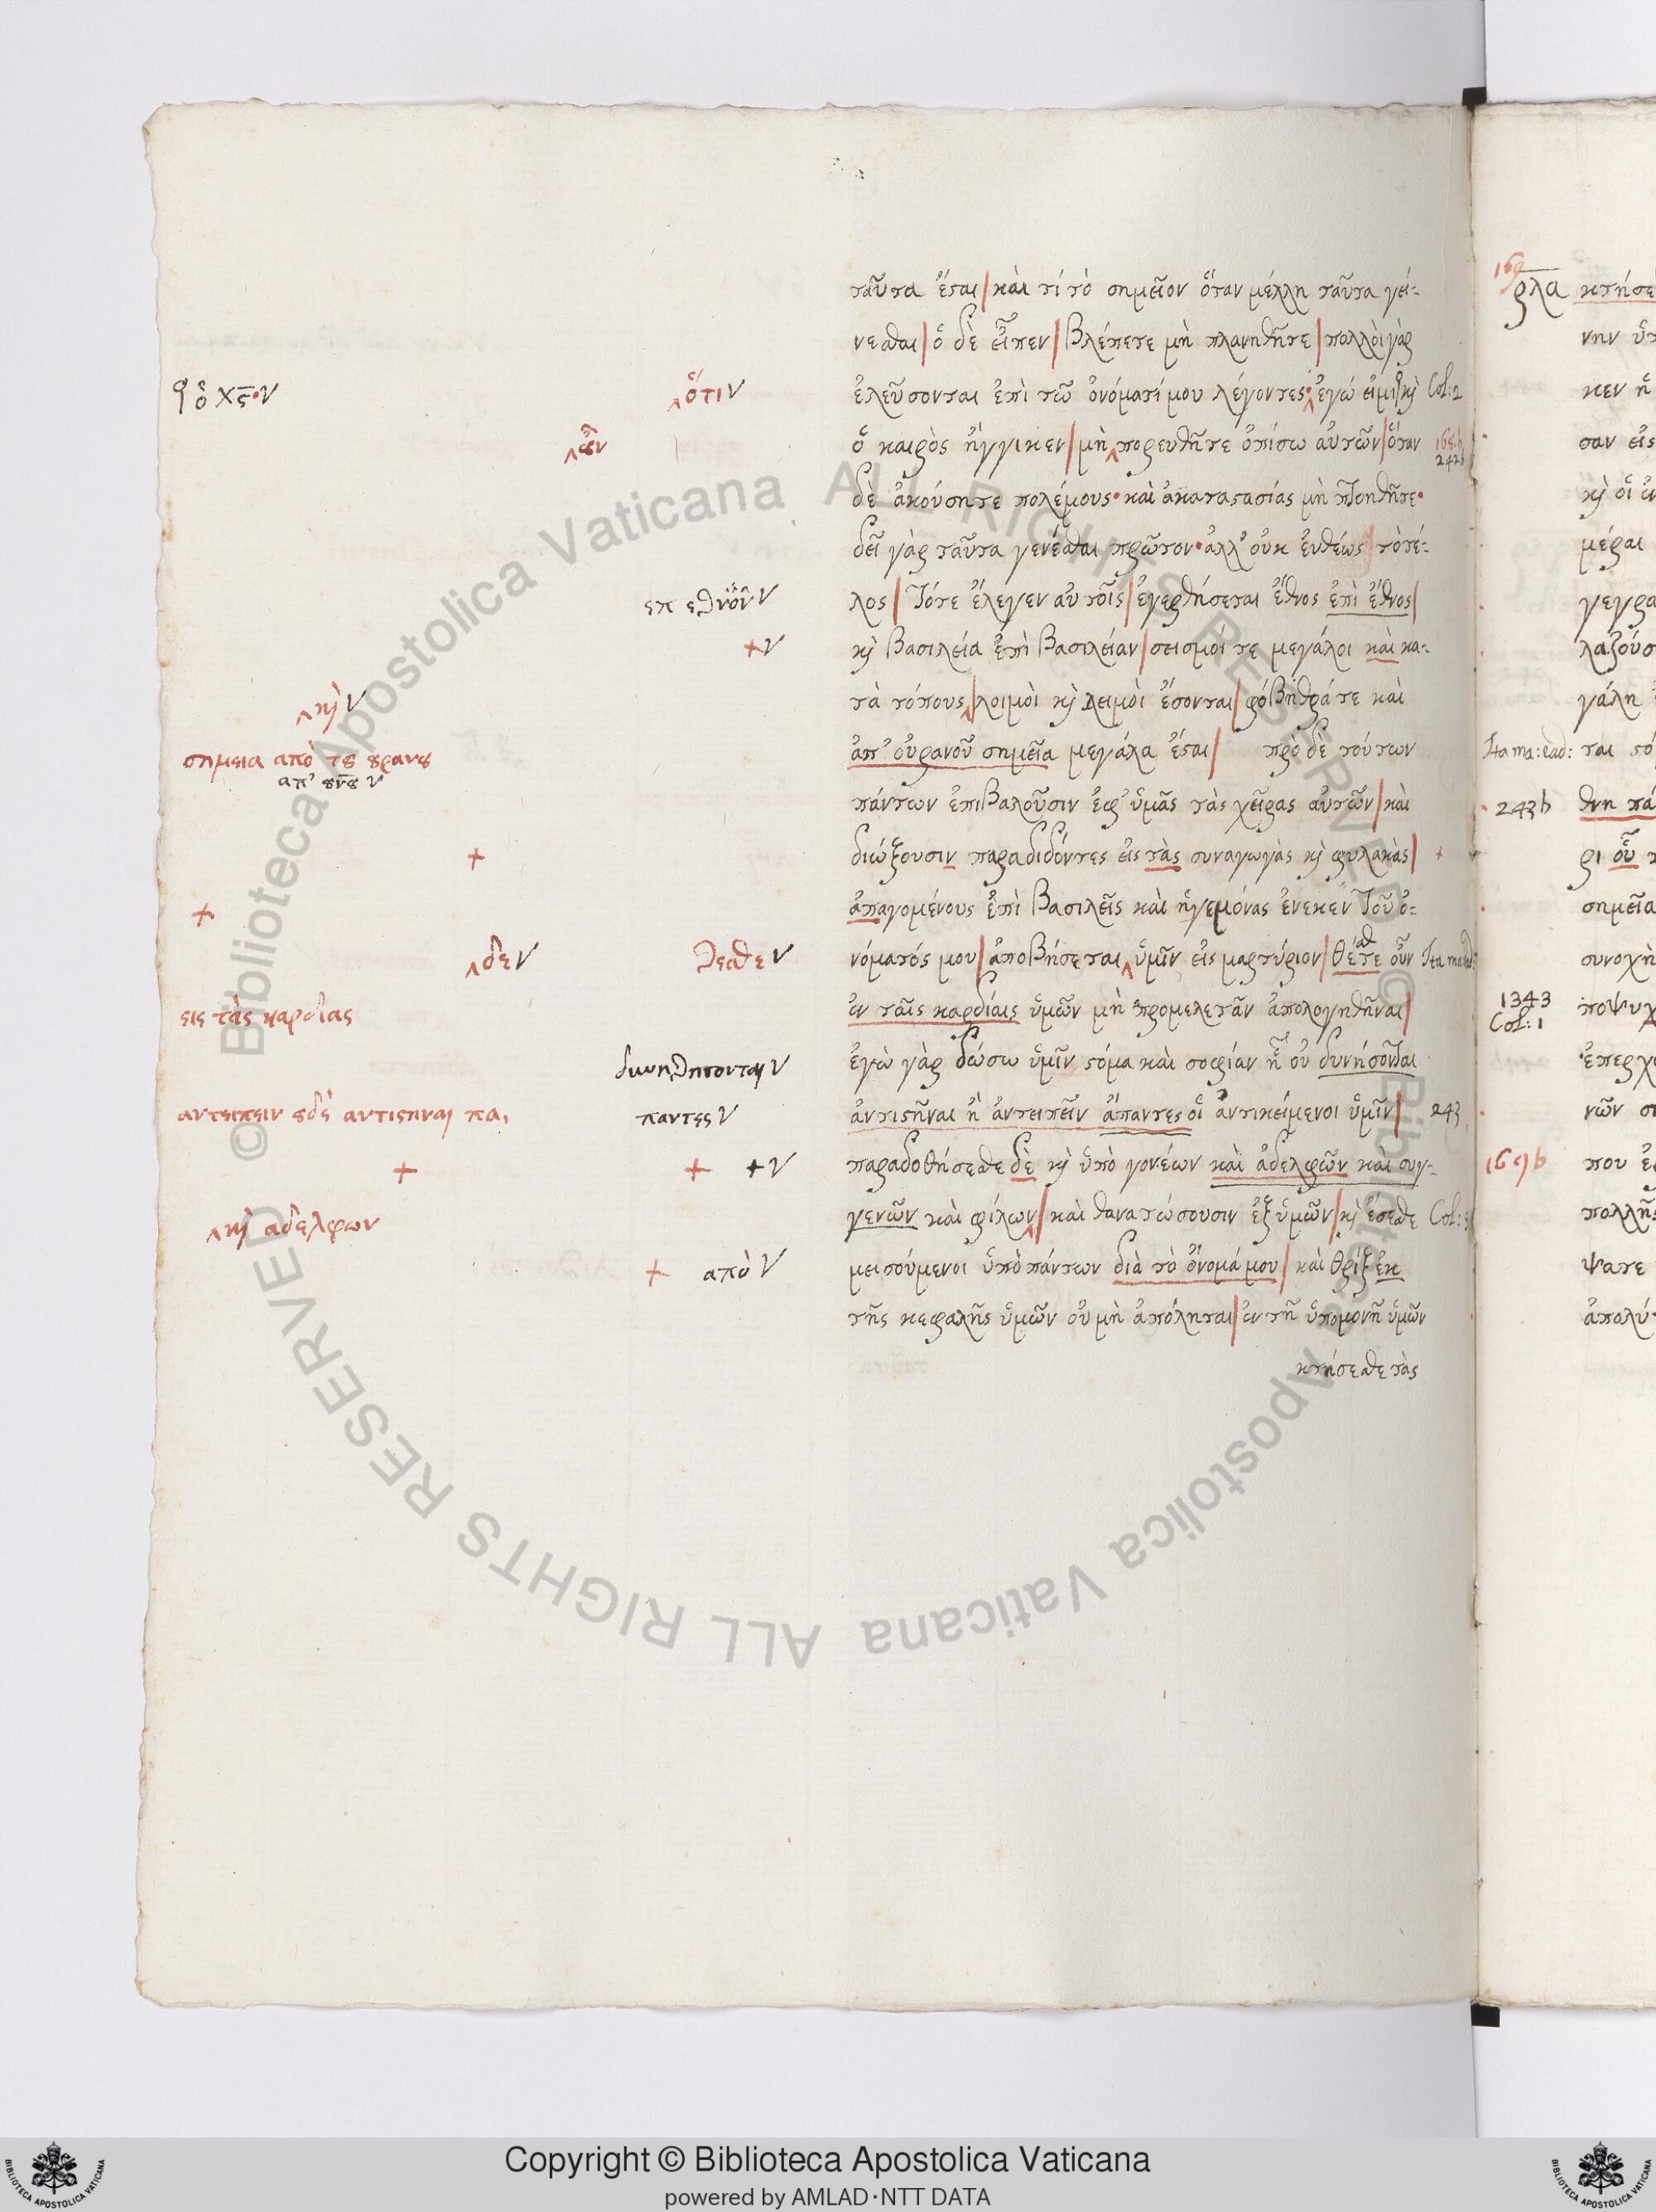 ταῦτα ἔσται / καὶ τί τὸ σημεῖον ὅταν μέλλη ταῦτα γεί-
νεσθαι / ὁ δὲ εἶπεν / Βλέπετε μὴ πλανηθῆτε / πολλοὶ γὰρ
ὁ χς · ν
‸ ὅτι ν
ἐλεύσονται ἐπὶ τῶ ὀνόματί μου λέγοντες · ‸ ἐγώ εἰμι κὶ Col: 2
‸ οὖν
ὁ καιρὸς ἤγγικεν / μὴ ‸ πορευθῆτε ὀπίσω αὐτῶν / ὅταν
242b
δὲ ἀκούσητε πολέμους · καὶ ἀκαταστασίας μὴ πτοηθῆτε ·
δεῖ γὰρ ταῦτα γενέσθαι πρῶτον · ἀλλ' οὐκ εὐθέως τὸ τέ-
λος / Τότε ἔλεγεν αὐτοῖς / ἐγερθήσεται ἔθνος ἐπὶ ἔθνος /
+ ν
κὶ Βασιλεία ἐπὶ Βασιλείαν / σεισμοί τε μεγάλοι καὶ κα-
‸ κὶ ν
τὰ τόπους ‸ / λοιμοὶ κὶ λειμοὶ ἔσονται / φόβηθρά τε καὶ
σημεια απὸ τȣ ȣρανȣ
απ' ȣνȣ ν
ἀπ' οὐρανοῦ σημεῖα μεγάλα ἔσται / πρὸ δὲ τούτων
πάντων ἐπιβαλοῦσιν ἐφ' ὑμᾶς τὰς χεῖρας αὐτῶν / καὶ
+
διώξουσιν παραδιδόντες εἰς τὰς συναγωγὰς κὶ φυλακὰς / +
+
ἀπαγομένους ἐπὶ Βασιλεῖς καὶ ἡγεμόνας ἕνεκεν τοῦ ὀ-
‸ δε ν
θεσθε ν
νόματός μου / ἀποβήσεται ‸ ὑμῖν εἰς μαρτύριον / θέτε οὖν
σθ
εις τὰς καρδιας
ἐν ταῖς καρδίαις ὑμῶν μὴ προμελετᾶν ἀπολογηθῆναι /
δυνηθησονται ν
ἐγὼ γὰρ δώσω ὑμῖν στόμα καὶ σοφίαν ᾗ οὐ δυνήσονται
αντειπειν ȣδὲ αντιστηναι πα,
παντες ν
ἀντιστῆναι ἢ ἀντειπεῖν ἅπαντες οἱ ἀντικείμενοι ὑμῖν / 243
+
+ + ν
παραδοθήσεσθε δὲ κὶ ὑπὸ γονέων καὶ ἀδελφῶν καὶ συγ-
‸ κὶ αδελφων
γενῶν καὶ φίλων ‸ / καὶ θανατώσουσιν ἐξ ὑμῶν / κὶ ἔσεσθε
+ απὸ ν
μεισούμενοι ὑπὸ πάντων διὰ τὸ ὄνομά μου / καὶ θρὶξ ἐκ
τῆς κεφαλῆς ὑμῶν οὐ μὴ ἀπόληται / ἐν τῇ ὑπομονῇ ὑμῶν
κτήσεσθε τὰς
ρλα κτήσε
νην
κεν ἡ
σαν εἰς
κὶ οἱ ἐν
μέραι
γεγρα
λαβοῦσ
γάλη
Ita ma: ead: ται
243b θνη πά
ρι οὗ
σημεῖα
συνοχὴ
1343 ποψυχ
Col: 1
ἐπερχ
νῶν
169b που
πολλῆς
ψατε
ἀπολύτ
© Biblioteca Apostolica Vaticana ALL RIGHTS RESERVED
© Biblioteca Apostolica Vaticana ALL RIGHTS RESERVED
BIBLIOTECA APOSTOLICA VATICANA
Copyright © Biblioteca Apostolica Vaticana
powered by AMLAD·NTT DATA
BIBLIOTECA APOSTOLICA VATICANA